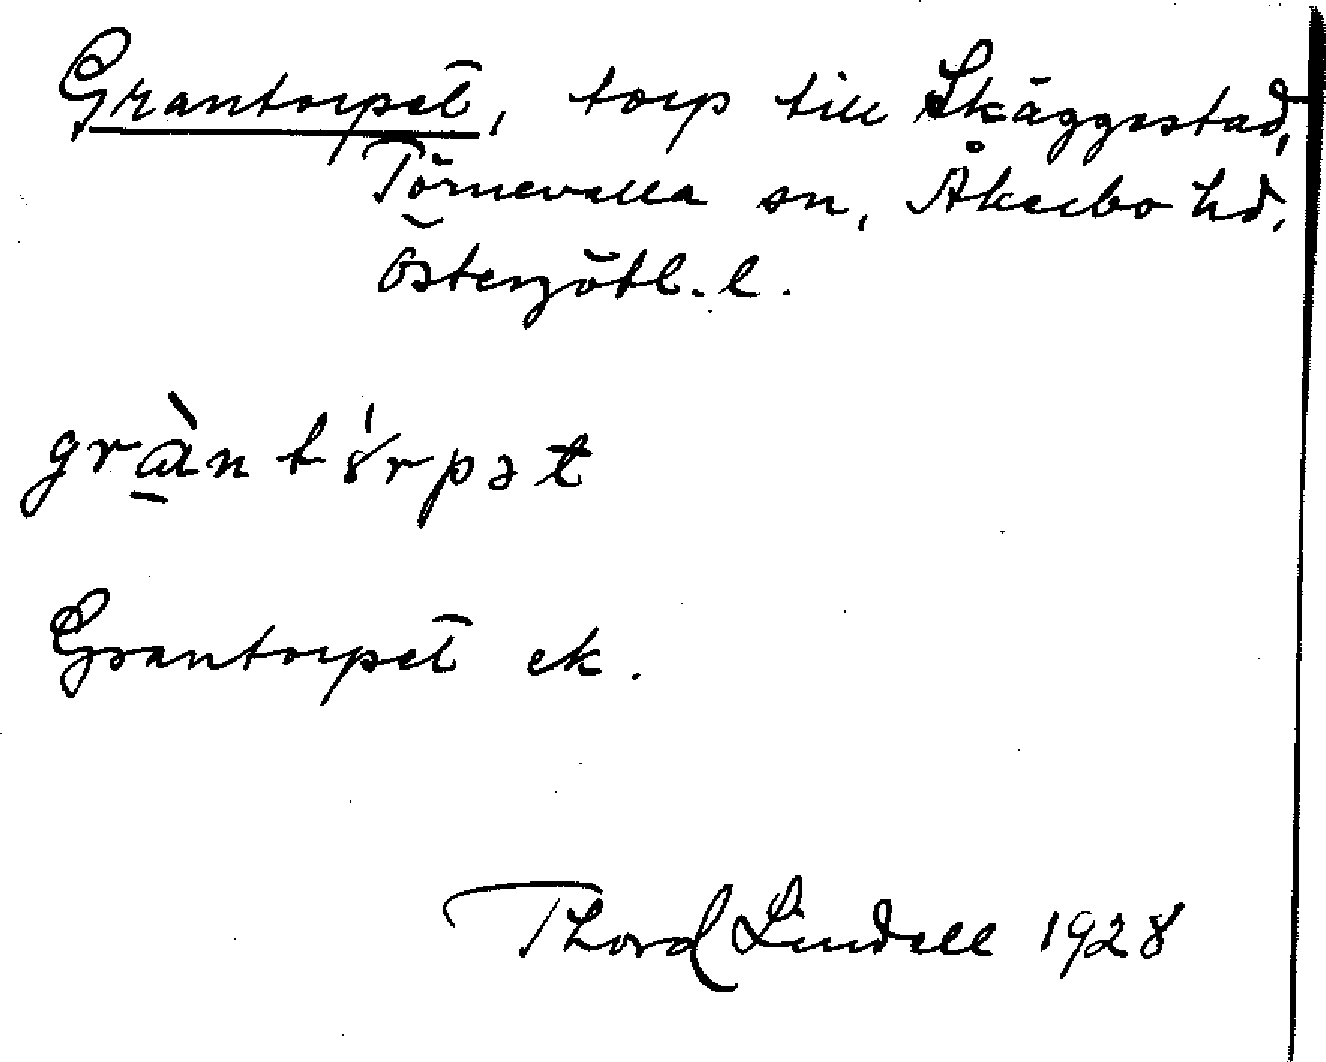 Grantorpet, torp till Skäggestad,
Törnevalla sn, Åkerbo hd,
Östergötl. l.
gràntórpət
Grantorpet ek.
Thord Lindell 1928